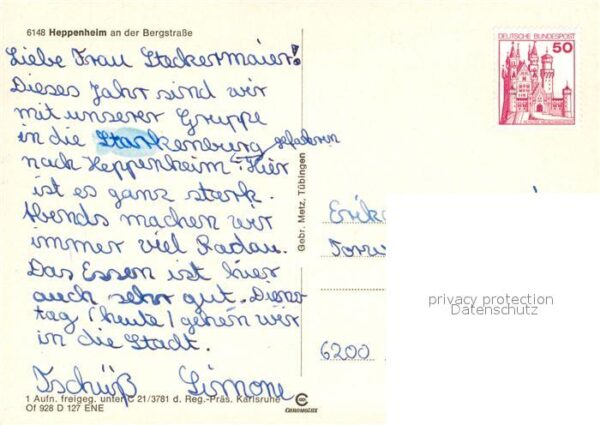 6148 Heppenheim an der Bergstraße
Liebe Frau Stockermaier!
Dieses Jahr sind wir
mit unserer Gruppe
in die Starkenburg gefahren
nach Heppenheim. Hier
ist es ganz stark.
Abends machen wir
immer viel Radau.
Das Essen ist hier
auch sehr gut. Diens-
tag (heute) gehen wir
in die Stadt.
Tschüß Simone
1 Aufn. freigeg. unter C 21/3781 d. Reg.-Präs. Karlsruhe
Of 928 D 127 ENE
CEKOMOLUX
Gebr. Metz, Tübingen
DEUTSCHE BUNDESPOST
50
Erika
6200
privacy protection
Datenschutz